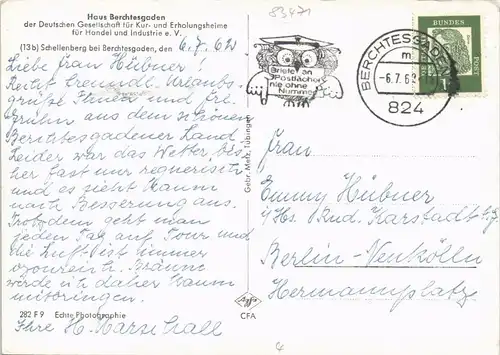 Haus Berchtesgaden
der Deutschen Gesellschaft für Kur- und Erholungsheime
für Handel und Industrie e. V.
(13b) Schellenberg bei Berchtesgaden, den 6.7.62
Liebe Frau Hübner!
Recht freundl. Urlaubs-
grüße Ihnen und
aus dem schönen
Berchtesgadener Land.
Leider war das Wetter bis-
her fast nur regnerisch
und es sieht kaum
nach Besserung aus.
Trotzdem geht man
jeden Tag auf Tour und
die Luft ist immer
ozonreich. Bräune
würde ich daher kaum
mitbringen.
Ihre H. Marschall
282 F 9 Echte Photographie
Gebr. Metz, Tübingen
CFA
83471
Briefe an
Postfächer
nie ohne
Nummer
BERCHTESGADEN
m
-6.7.62
824
BUNDES
POST
Frau
Emmy Hübner
i/Hs. Rud. Karstadt A.G.
Berlin-Neukölln
Hermannplatz